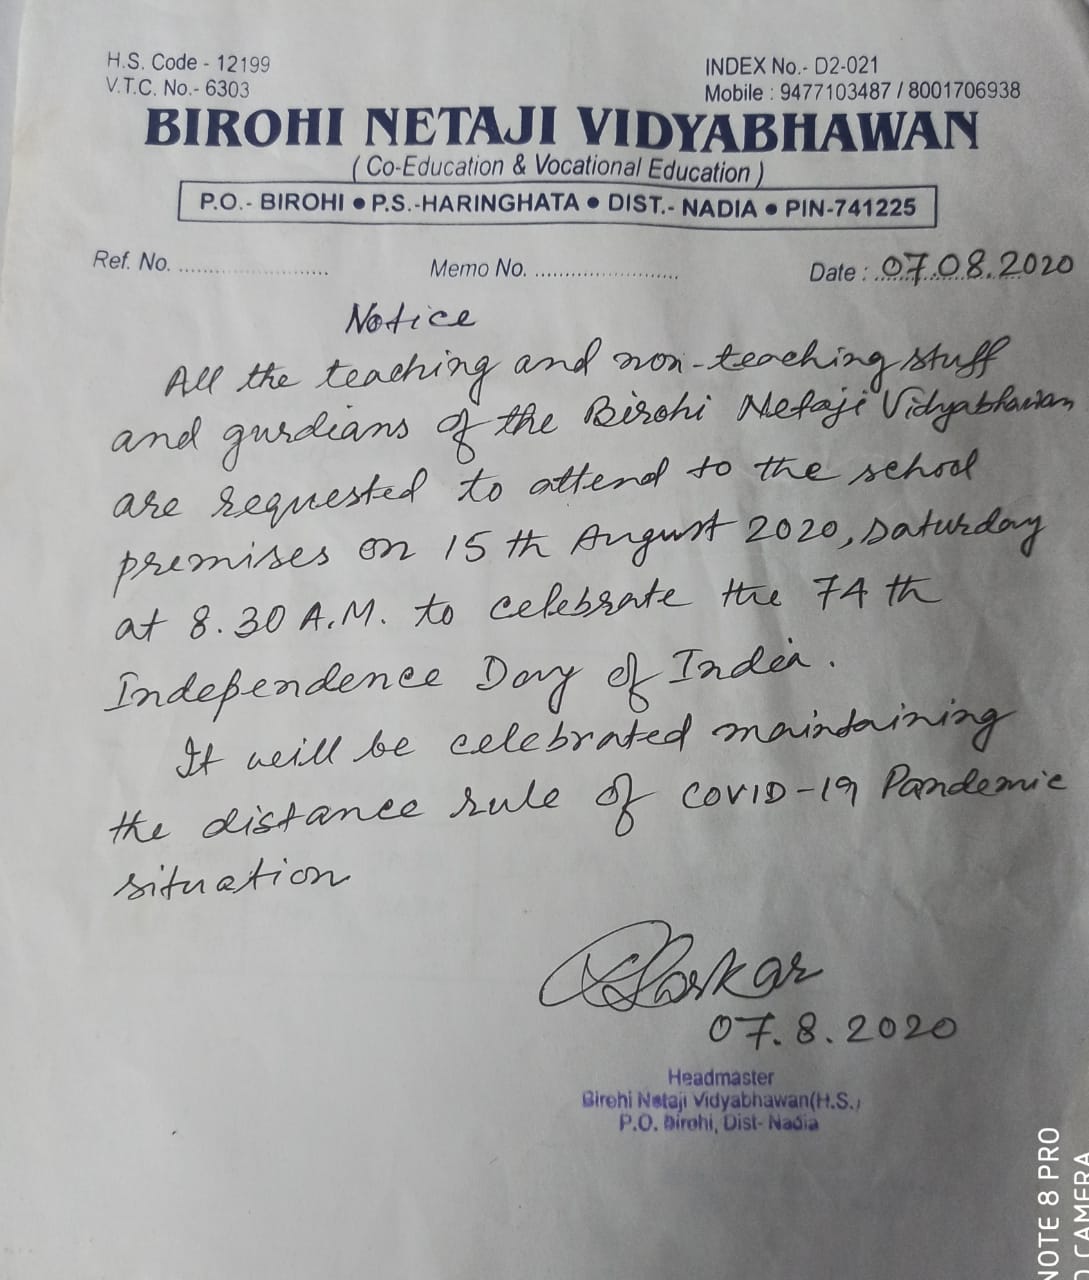 H.S. Code - 12199
V.T.C. No.- 6303
INDEX No.- D2-021
Mobile : 9477103487 / 8001706938
BIROHI NETAJI VIDYABHAWAN
( Co-Education & Vocational Education )
P.O.- BIROHI ● P.S.-HARINGHATA ● DIST.- NADIA ● PIN-741225
Ref. No. ............................ Memo No. ........................... Date : 07.08.2020
Notice
All the teaching and non-teaching stuff
and gurdians of the Birohi Netaji Vidyabhawan
are requested to attend to the school
premises on 15 th August 2020, Saturday
at 8.30 A.M. to celebrate the 74 th
Independence Day of India.
It will be celebrated maintaining
the distance rule of COVID-19 Pandemic
situation
Sarkar
07.8.2020
Headmaster
Birohi Netaji Vidyabhawan(H.S.)
P.O. Birohi, Dist- Nadia
NOTE 8 PRO
CAMERA